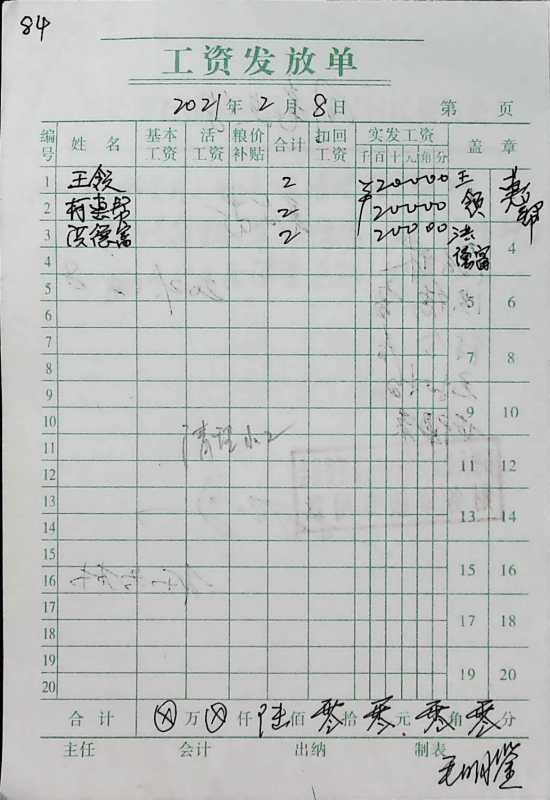 84
工资发放单
2021年2月8日 第 页
编号 姓名 基本工资 活工资 粮价补贴 合计 扣回工资 实发工资 千百十元角分 盖章
1 王领 2 ¥20000 王领
2 柯惠帮 2 20000 惠帮
3 洪德富 2 20000 洪德富 4
4
5 5 6
6
7 7 8
8
9 9 10
10
11 清理 11 12
12
13 13 14
14
15 15 16
16
17 17 18
18
19 19 20
20
合计 ⊗万⊗仟陆佰零拾零元零角零分
主任 会计 出纳 制表